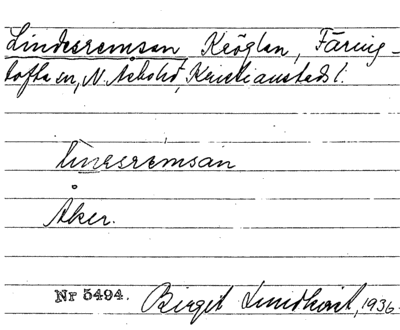 Lindesremsan Kröglan, Färing-
tofta sn, N. Åsbohd, Kristianstads l.
linesremsan
Åker.
Nr 5494. Birgit Lundkvist, 1936.